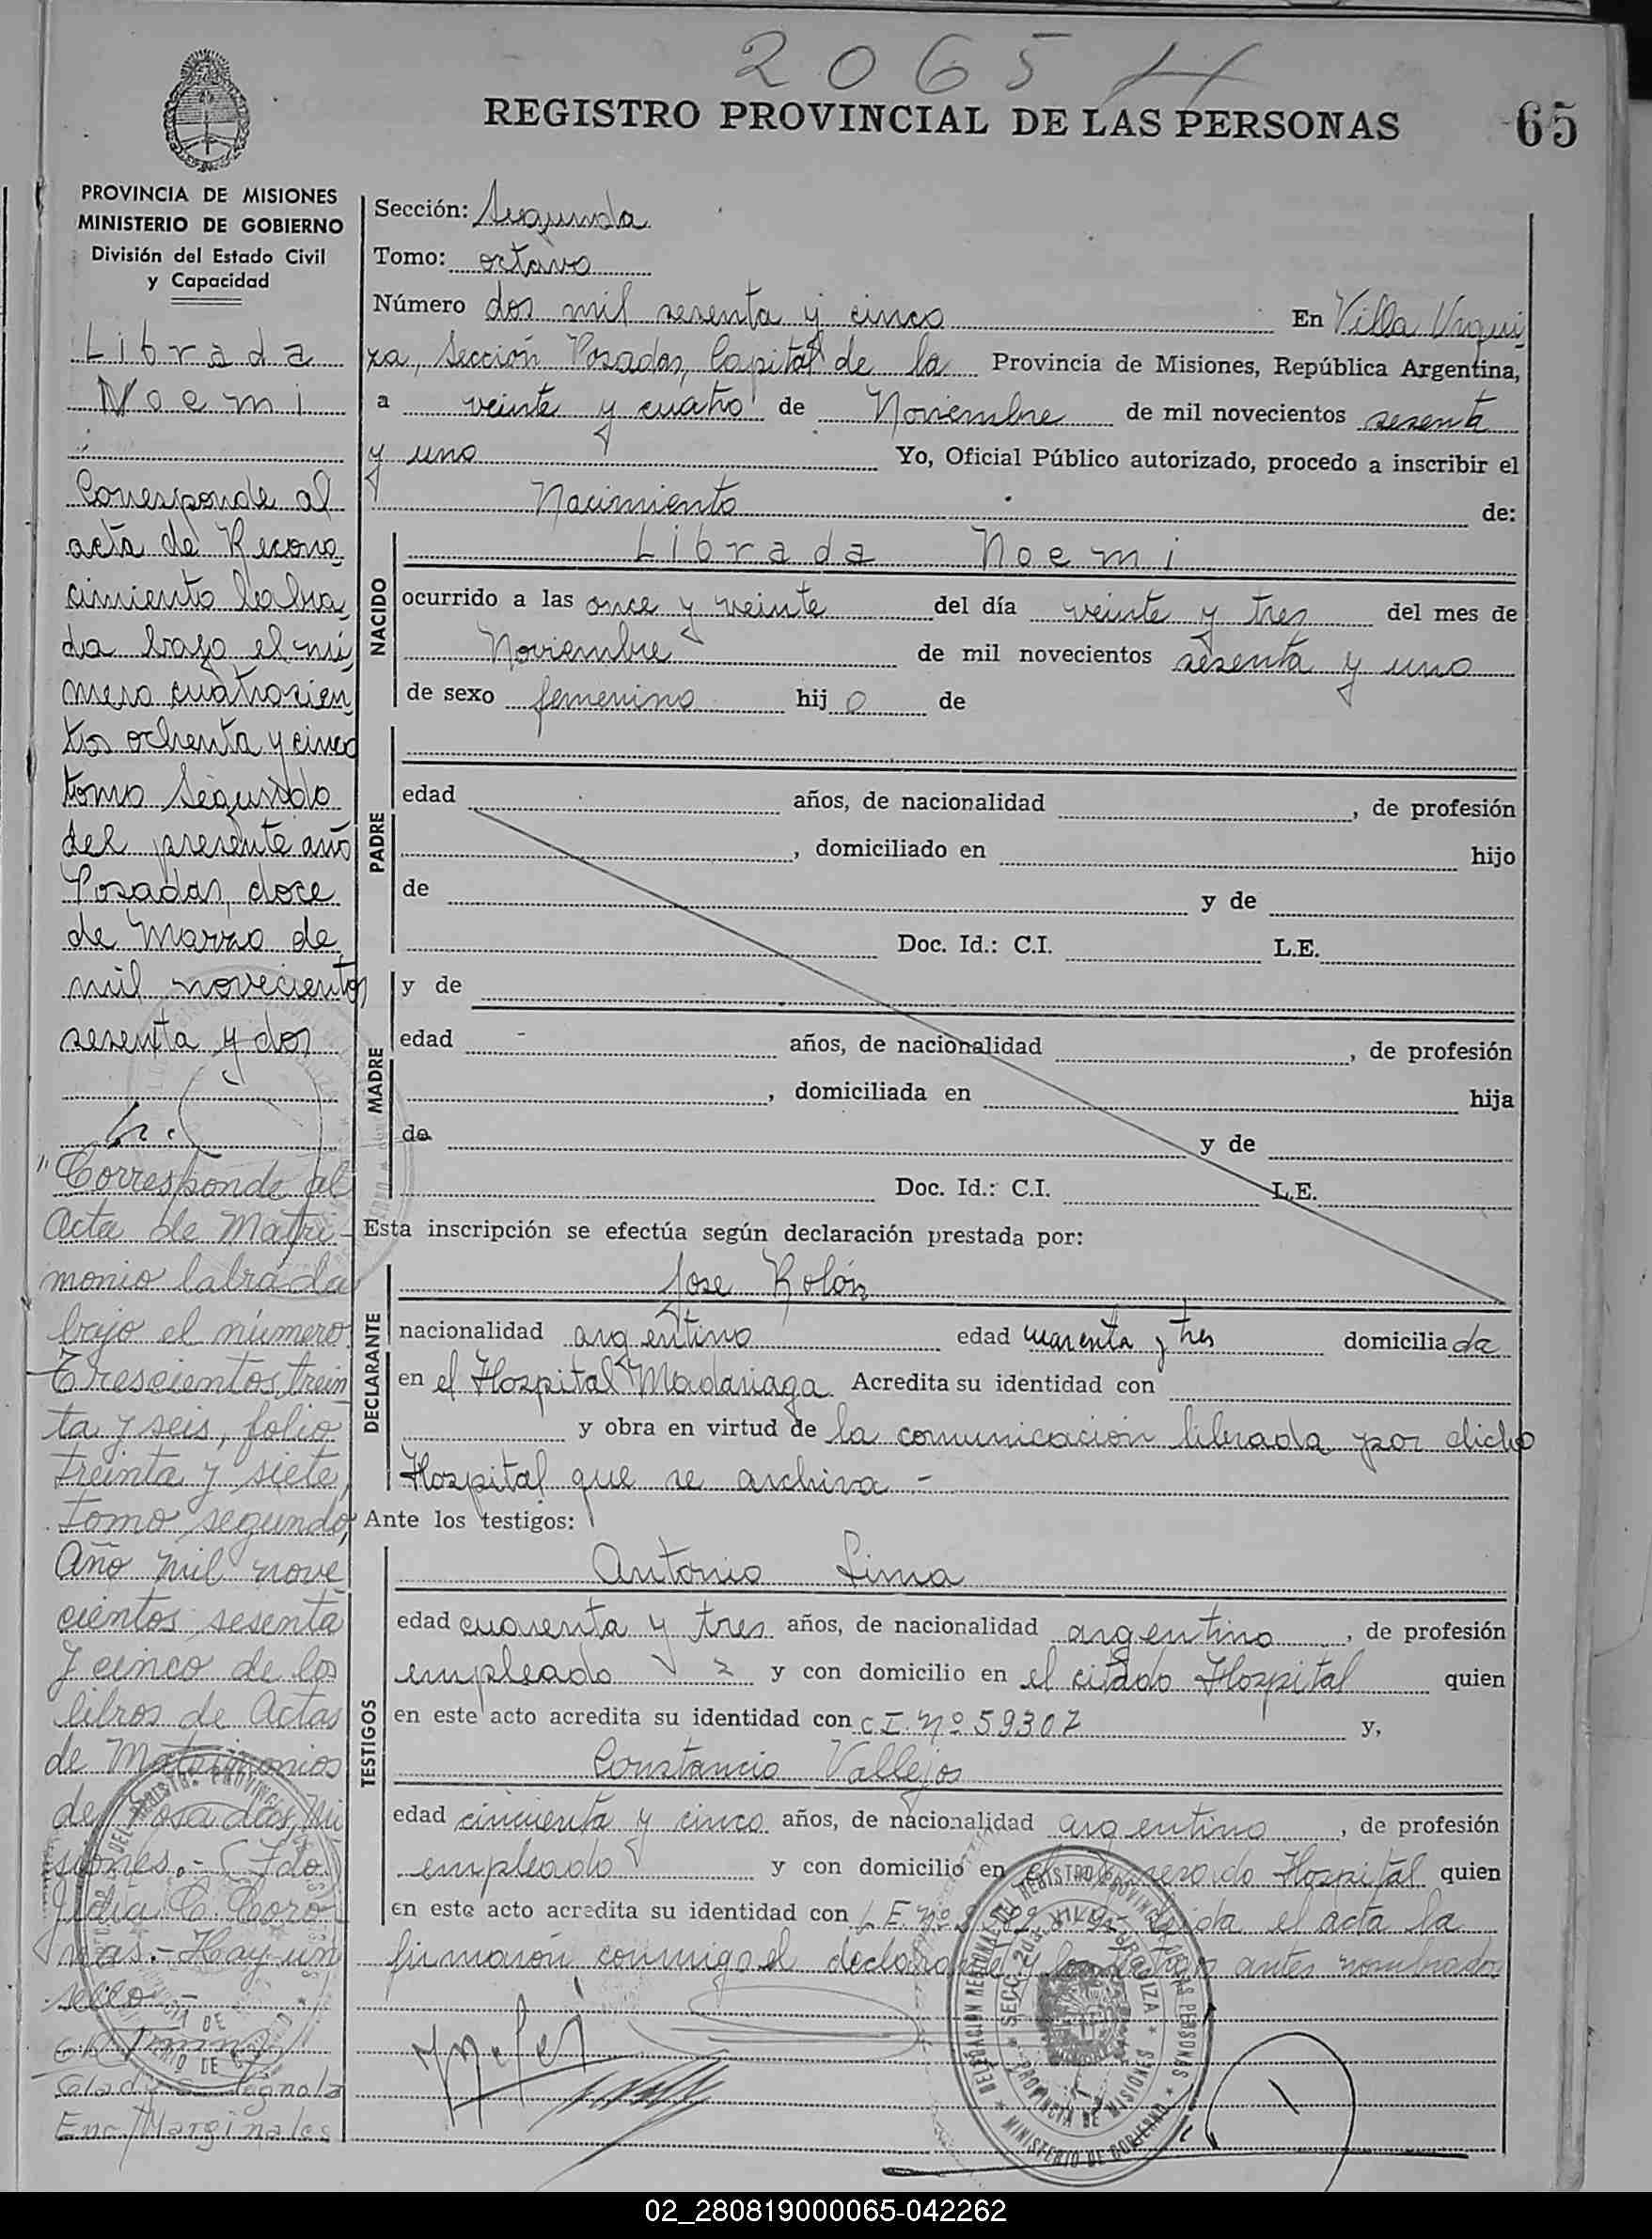 2065
REGISTRO PROVINCIAL DE LAS PERSONAS
65
PROVINCIA DE MISIONES
MINISTERIO DE GOBIERNO
División del Estado Civil
y Capacidad
Librada
Noemi
Corresponde al
acta de Recono
cimiento labra
da bajo el nú
mero cuatrocien
tos ochenta y cinco
tomo Segundo
del presente año
Posadas, doce
de Marzo de
mil novecientos
sesenta y dos
"Corresponde al
Acta de Matri-
monio labrada
bajo el número
Trescientos trein
ta y seis, folio
treinta y siete,
Tomo segundo,
Año mil nove
cientos sesenta
y cinco de los
libros de Actas
de Matrimonios
de Posadas, Mi
siones.- (Fdo
C. Coro
nas.- Hay un
sello
Enc/Marginales
Sección: Segunda
Tomo: octavo
Número dos mil sesenta y cinco En Villa Urqui
za, Sección Posadas, Capital de la Provincia de Misiones, República Argentina,
a veinte y cuatro de Noviembre de mil novecientos sesenta
y uno Yo, Oficial Público autorizado, procedo a inscribir el
Nacimiento de:
NACIDO
Librada Noemi
ocurrido a las once y veinte del día veinte y tres del mes de
Noviembre de mil novecientos sesenta y uno
de sexo femenino hij o de
PADRE
edad años, de nacionalidad , de profesión
, domiciliado en hijo
de y de
Doc. Id.: C.I. L.E.
MADRE
y de
edad años, de nacionalidad , de profesión
, domiciliada en hija
de y de
Doc. Id.: C.I. L.E.
Esta inscripción se efectúa según declaración prestada por:
DECLARANTE
Jose Rolón
nacionalidad argentino edad cuarenta y tres domicilia da
en el Hospital Madariaga. Acredita su identidad con
y obra en virtud de la comunicación librada por dicho
Hospital que se archiva -
Ante los testigos:
TESTIGOS
Antonio Lima
edad cuarenta y tres años, de nacionalidad argentino, de profesión
empleado y con domicilio en el citado Hospital quien
en este acto acredita su identidad con C.I. Nº 59307 y,
Constancio Vallejos
edad cincuenta y cinco años, de nacionalidad argentino, de profesión
empleado y con domicilio en el Hospital quien
en este acto acredita su identidad con L.E. nº Leida el acta la
firmaron conmigo el declarante y los testigos antes nombrados
DELEGACION REGIONAL DEL REGISTRO PROVINCIAL DE LAS PERSONAS
* MINISTERIO DE GOBIERNO *
* SECC. 2da. VILLA URQUIZA *
PROVINCIA DE MISIONES
02_280819000065-042262